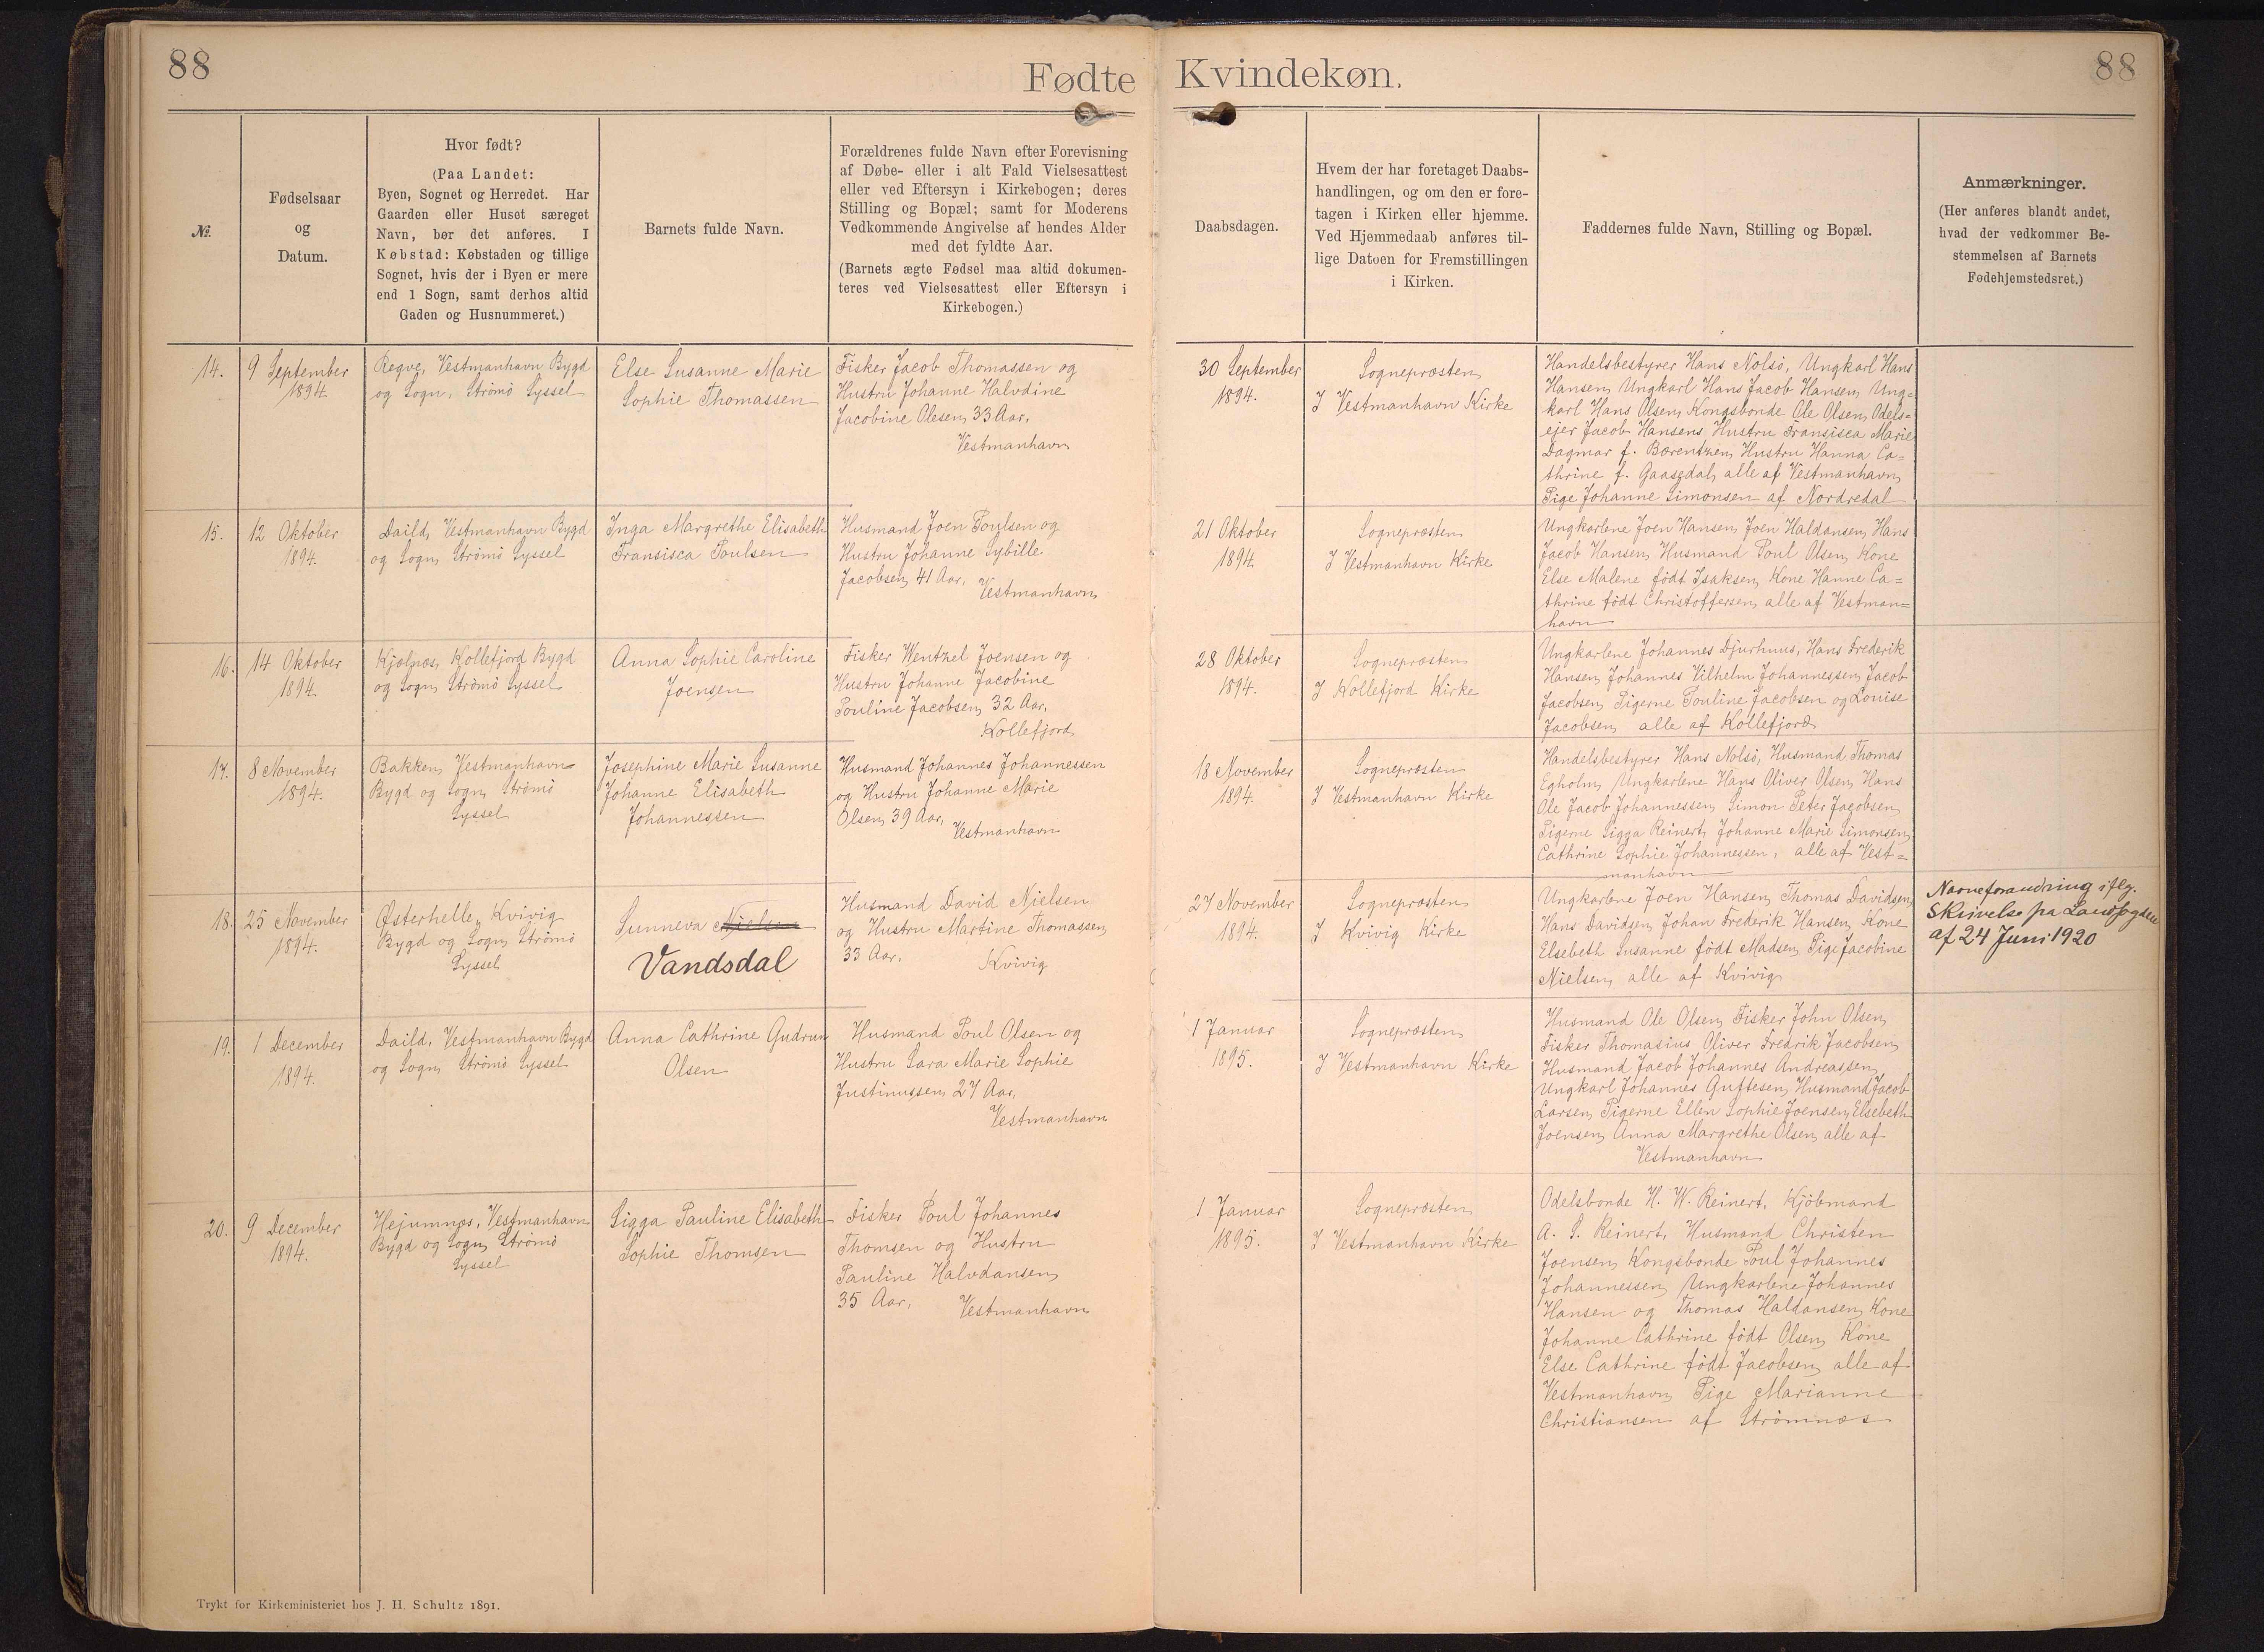 88
Fødte Kvindekøn.
88
№.
Fødselsaar
og
Datum.
Hvor født?
(Paa Landet:
Byen, Sognet og Herredet. Har
Gaarden eller Huset særeget
Navn, bør det anføres. I
Købstad: Købstaden og tillige
Sognet, hvis der i Byen er mere
end 1 Sogn, samt derhos altid
Gaden og Husnummeret.)
Barnets fulde Navn.
Forældrenes fulde Navn efter Forevisning
af Døbe- eller i alt Fald Vielsesattest
eller ved Eftersyn i Kirkebogen; deres
Stilling og Bopæl; samt for Moderens
Vedkommende Angivelse af hendes Alder
med det fyldte Aar.
(Barnets ægte Fødsel maa altid dokumen-
teres ved Vielsesattest eller Eftersyn i
Kirkebogen.)
Daabsdagen.
Hvem der har foretaget Daabs-
handlingen, og om den er fore-
tagen i Kirken eller hjemme.
Ved Hjemmedaab anføres til-
lige Datoen for Fremstillingen
i Kirken.
Faddernes fulde Navn, Stilling og Bopæl.
Anmærkninger.
(Her anføres blandt andet,
hvad der vedkommer Be-
stemmelsen af Barnets
Fødehjemstedsret.)
14.
9 September
1894
Reqve, Vestmanhavn Bygd
og Sogn, Strömö Syssel
Else Susanne Marie
Sophie Thomassen
Fisker Jacob Thomassen og
Hustru Johanne Halvdine
Jacobine Olesen, 33 Aar,
Vestmanhavn
30 September
1894.
Sognepræsten
I Vestmanhavn Kirke
Handelsbestyrer Hans Nolsö, Ungkarl Hans
Hansen, Ungkarl Hans Jacob Hansen, Ung=
karl Hans Olsen, Kongsbonde Ole Olsen, Odels=
ejer Jacob Hansens Hustru Fransisca Marie
Dagmar f. Bærentzen, Hustru Hanna Ca=
thrine f. Gaasedal, alle af Vestmanhavn,
Pige Johanne Simonsen af Nordredal
15.
12 Oktober
1894.
Daild, Vestmanhavn Bygd
og Sogn, Strömö Syssel
Inga Margrethe Elisabeth
Fransisca Poulsen
Husmand Joen Poulsen og
Hustru Johanne Sybille
Jacobsen, 41 Aar,
Vestmanhavn
21 Oktober
1894.
Sognepræsten
I Vestmanhavn Kirke
Ungkarlene Joen Hansen, Joen Haldansen, Hans
Jacob Hansen, Husmand Poul Olsen, Kone
Else Malene födt Isaksen, Kone Hanne Ca=
thrine födt Christoffersen, alle af Vestman=
havn
16.
14 Oktober
1894.
Kjolnæs, Kollefjord Bygd
og Sogn, Strömö Syssel
Anna Sophie Caroline
Joensen
Fisker Wentzel Joensen og
Hustru Johanne Jacobine
Pouline Jacobsen, 32 Aar,
Kollefjord
28 Oktober
1894.
Sognepræsten
I Kollefjord Kirke
Ungkarlene Johannes Djurhuus, Hans Frederik
Hansen, Johannes Vilhelm Johannessen, Jacob
Jacobsen, Pigerne Pouline Jacobsen og Louise
Jacobsen, alle af Kollefjord
17.
8 November
1894.
Bakken, Vestmanhavn
Bygd og Sogn, Strömö
Syssel
Josephine Marie Susanne
Johanne Elisabeth
Johannessen
Husmand Johannes Johannessen
og Hustru Johanne Marie
Olsen, 39 Aar,
Vestmanhavn
18 November
1894.
Sognepræsten
I Vestmanhavn Kirke
Handelsbestyrer Hans Nolsö, Husmand Thomas
Egholm, Ungkarlene Hans Oliver Olsen, Hans
Ole Jacob Johannessen, Simon Peter Jacobsen,
Pigerne Sigga Reinert, Johanne Marie Simonsen,
Cathrine Sophie Johannessen, alle af Vest=
manhavn
18.
25 November
1894.
Østerhelle, Kvivig
Bygd og Sogn, Strömö
Syssel
Sunneva Nielsen
Vandsdal
Husmand David Nielsen
og Hustru Martine Thomassen,
33 Aar,
Kvivig
27 November
1894.
Sognepræsten
I Kvivig Kirke
Ungkarlene Joen Hansen, Thomas Davidsen,
Hans Davidsen, Johan Frederik Hansen, Kone
Elsebeth Susanne födt Madsen, Pige Jacobine
Nielsen, alle af Kvivig
Navneforandring iflg.
Skrivelse fra Landfogden
af 24 Juni 1920
19.
1 December
1894.
Daild, Vestmanhavn Bygd
og Sogn, Strömö Syssel
Anna Cathrine Gudrun
Olsen
Husmand Poul Olsen og
Hustru Sara Marie Sophie
Justinussen, 27 Aar,
Vestmanhavn
1 Januar
1895.
Sognepræsten
I Vestmanhavn Kirke
Husmand Ole Olsen, Fisker John Olsen,
Fisker Thomasius Oliver Fredrik Jacobsen,
Husmand Jacob Johannes Andreassen,
Ungkarl Johannes Guttesen, Husmand Jacob
Larsen, Pigerne Ellen Sophie Joensen, Elsebeth
Joensen, Anna Margrethe Olsen, alle af
Vestmanhavn
20.
9 December
1894.
Hejumnæs, Vestmanhavn
Bygd og Sogn, Strömö
Syssel
Sigga Pauline Elisabeth
Sophie Thomsen
Fisker Poul Johannes
Thomsen og Hustru
Pauline Halvdansen,
35 Aar,
Vestmanhavn
1 Januar
1895.
Sognepræsten
I Vestmanhavn Kirke
Odelsbonde H. W. Reinert, Kjöbmand
A. S. Reinert, Husmand Christen
Joensen, Kongsbonde Poul Johannes
Johannessen, Ungkarlene Johannes
Hansen og Thomas Haldansen, Kone
Johanne Cathrine födt Olsen, Kone
Else Cathrine födt Jacobsen, alle af
Vestmanhavn, Pige Marianne
Christiansen af Strömnæs
Trykt for Kirkeministeriet hos J. H. Schultz 1891.